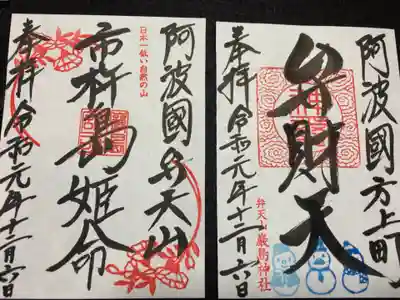 阿波國方上町
弁財天
弁天山 厳島神社
奉拝 令和元年十二月六日
阿波國弁天山
日本一低い自然の山
市杵島姫命
奉拝 令和元年十二月六日